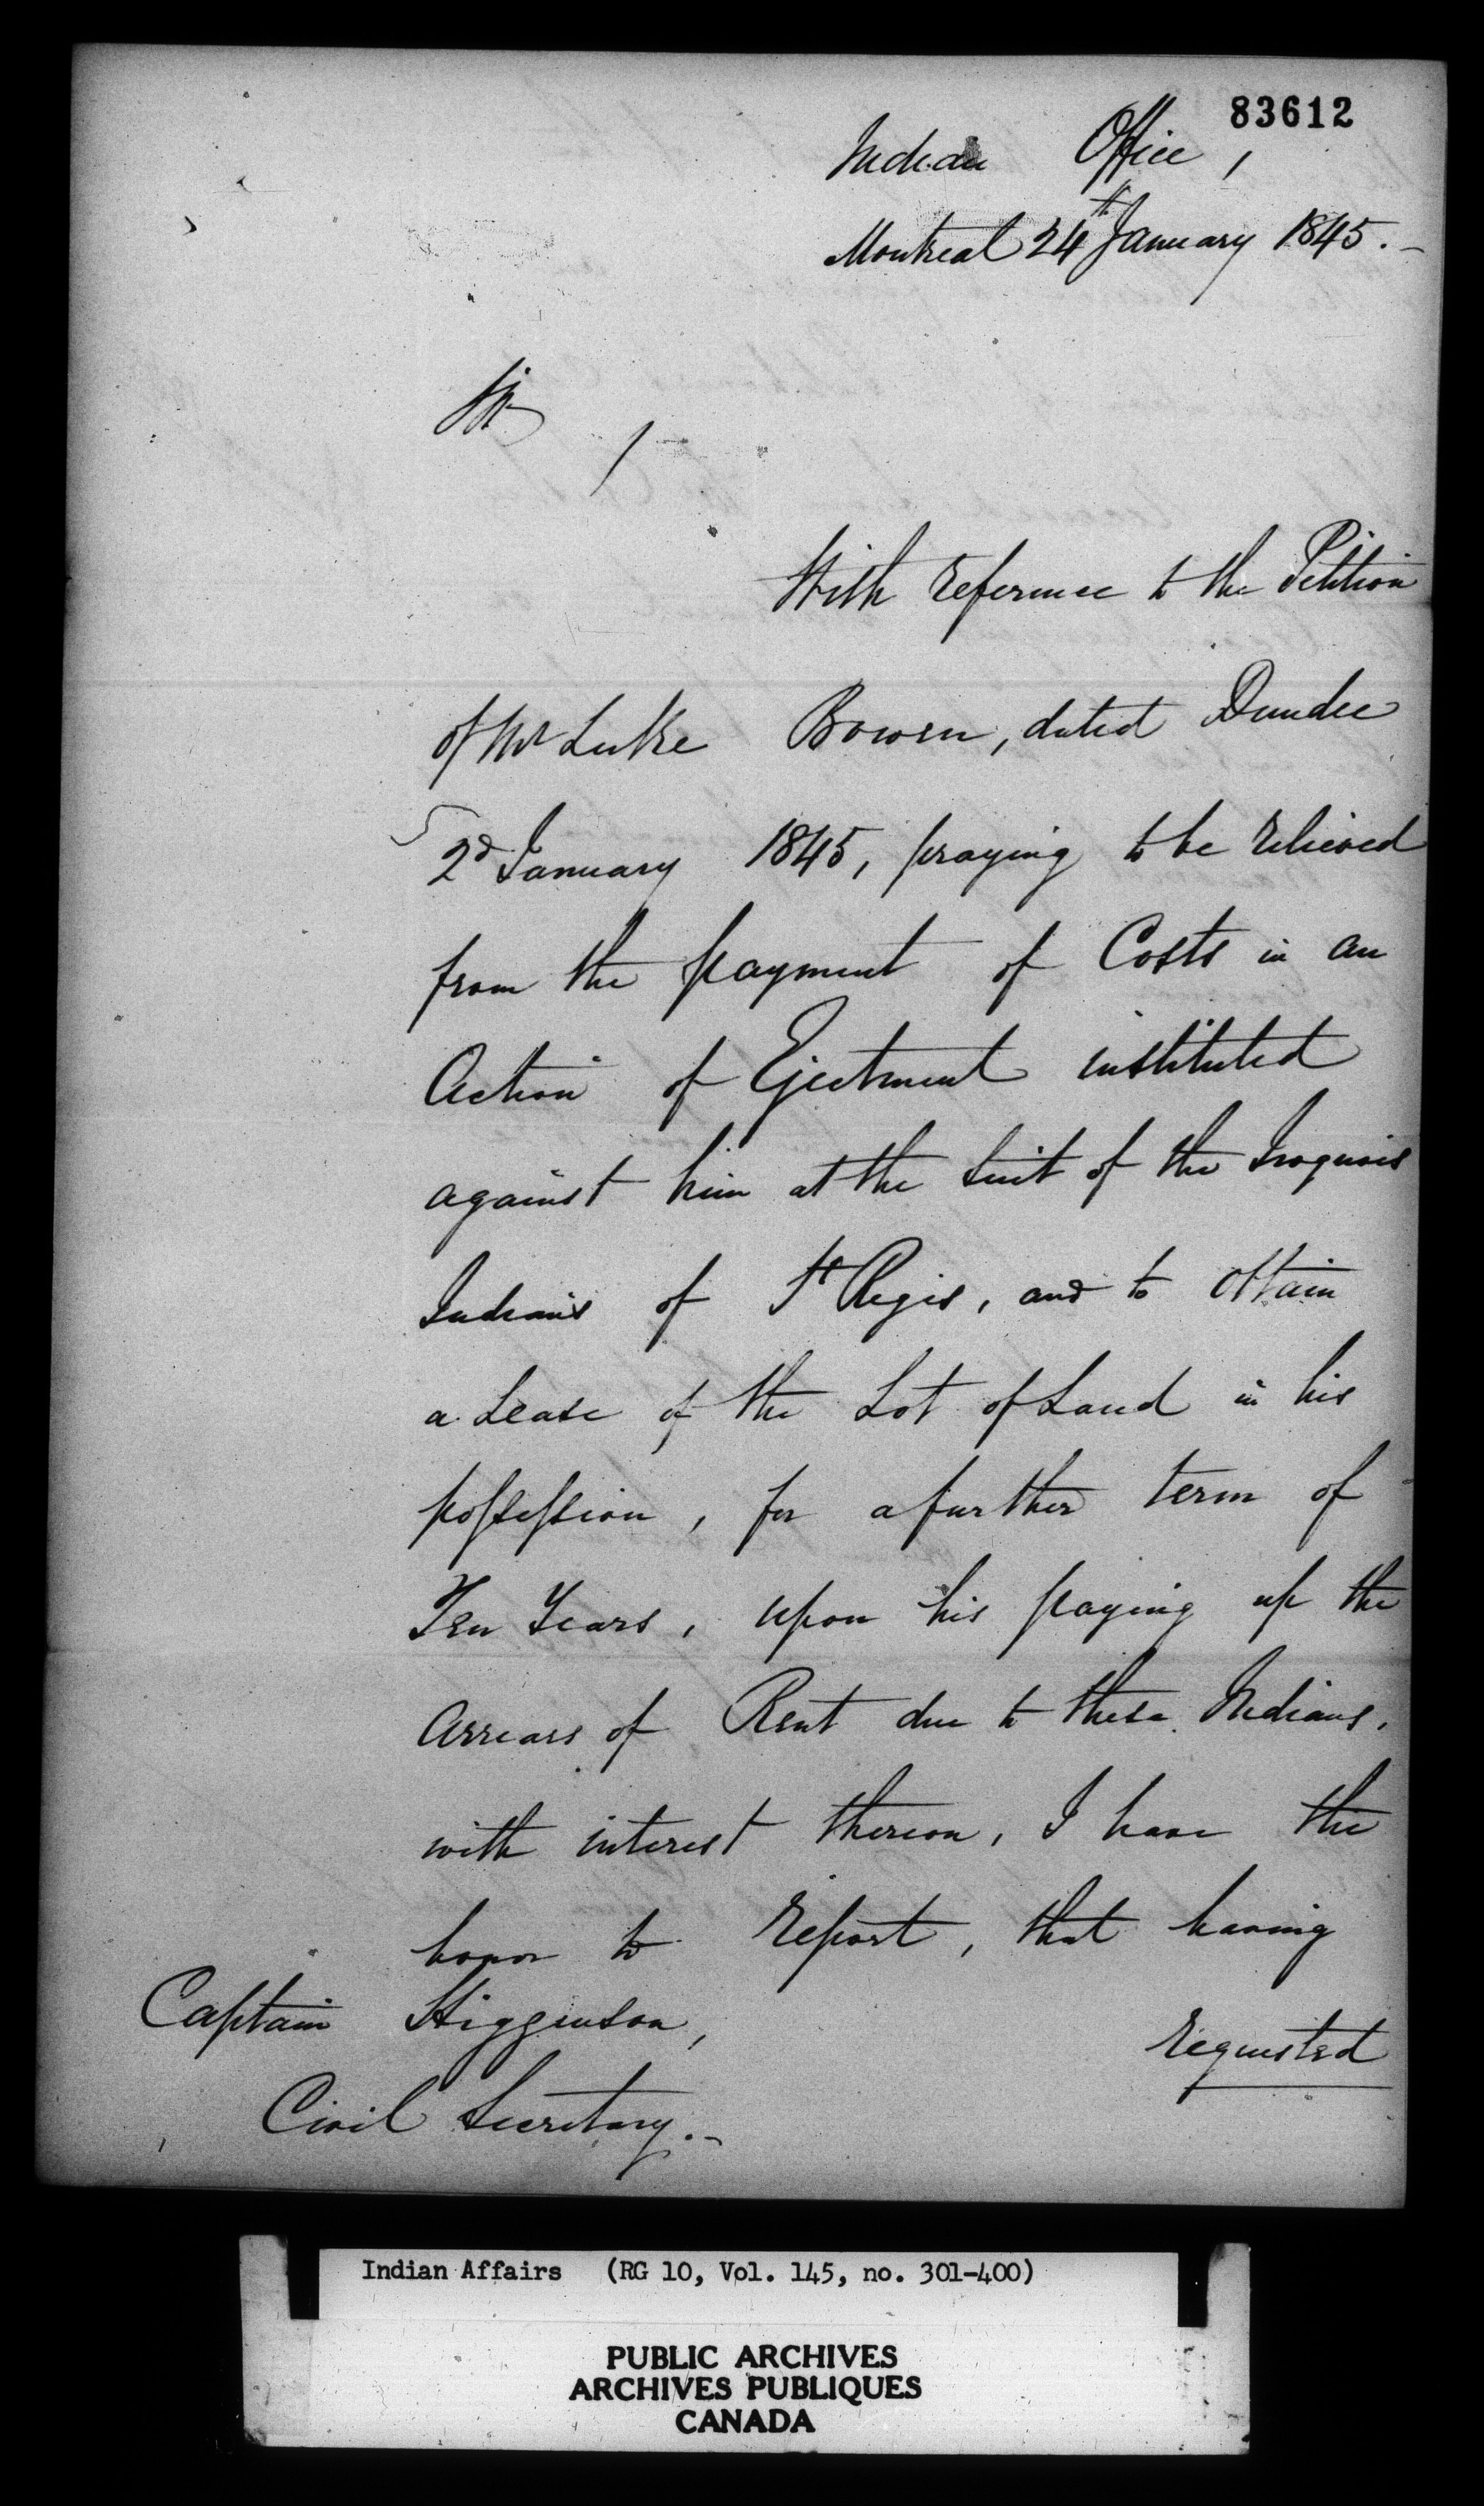 83612
Indian Office,
Montreal 24th January 1845.-
Sir,
With reference to the Petition
of Mr Luke Bowen, dated Dundee
2d January 1845, praying to be relieved
from the payment of Costs in an
Action of Ejectment instituted
against him at the suit of the Iroquois
Indians of St Regis, and to obtain
a Lease of the Lot of Land in his
possession, for a further term of
Ten Years, upon his paying up the
Arrears of Rent due to these Indians,
with interest thereon, I have the
honor to report, that having
requested
Captain Higginson,
Civil Secretary.-
Indian Affairs (RG 10, Vol. 145, no. 301-400)
PUBLIC ARCHIVES
ARCHIVES PUBLIQUES
CANADA